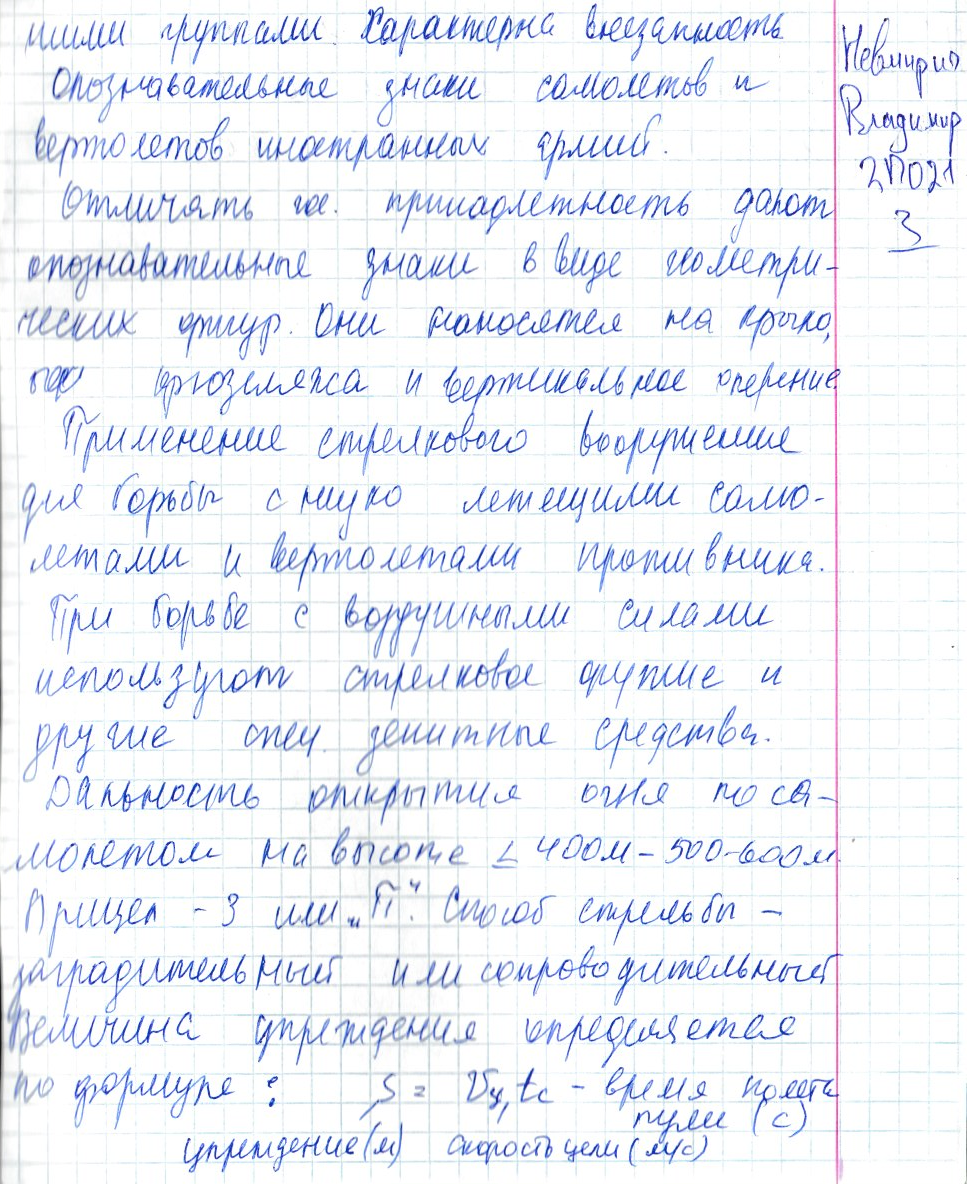 шими группами. Характерна внезапность
Опознавательные знаки самолетов и
вертолетов иностранных армий.
Отличать гос. принадлежность дают
опознавательные знаки в виде геометри-
ческих фигур. Они наносятся на крыло,
фюзеляжа и вертикальное оперение
Применение стрелкового вооружение
для борьбы с низко летещими само-
летами и вертолетами противника.
При борьбе с воздушными силами
используют стрелковое оружие и
другие спец. зенитные средства.
Дальность открытия огня по са-
молетом на высоте ≤ 400м - 500-600м
Прицел - 3 или „П". Способ стрельбы -
заградительный или сопроводительный
Величина упреждения определяется
по формуле : S = Vц, tс - время полета
пули (с)
упреждение (м) скорость цели (м/с)
Владимир
3